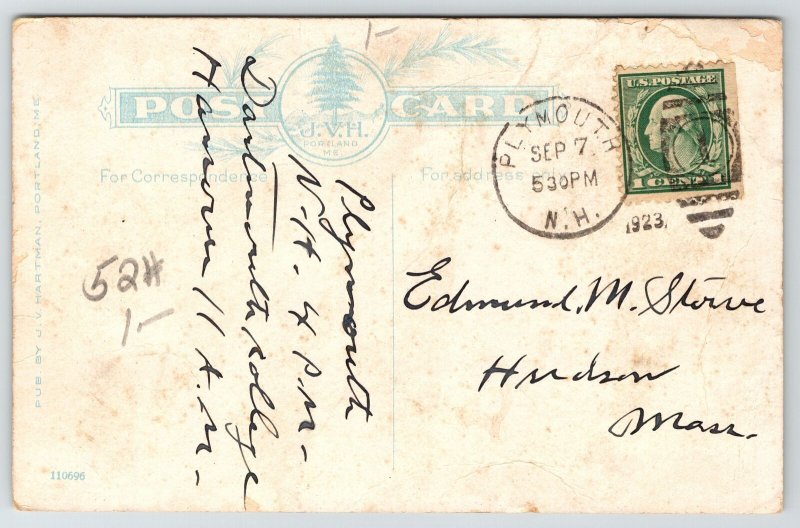 POST CARD
J.V.H.
PORTLAND
ME
For Correspondence
For address only
PUB BY J. V. HARTMAN, PORTLAND, ME
110696
U.S. POSTAGE
1 CENT 1
PLYMOUTH
SEP 7
530PM
N.H.
1923
1-
52#
1-
Plymouth
N-H. 4 P.M-
Dartmouth College
Hanover 11 A.M-
Edmund, M. Stowe
Hudson
Mass.